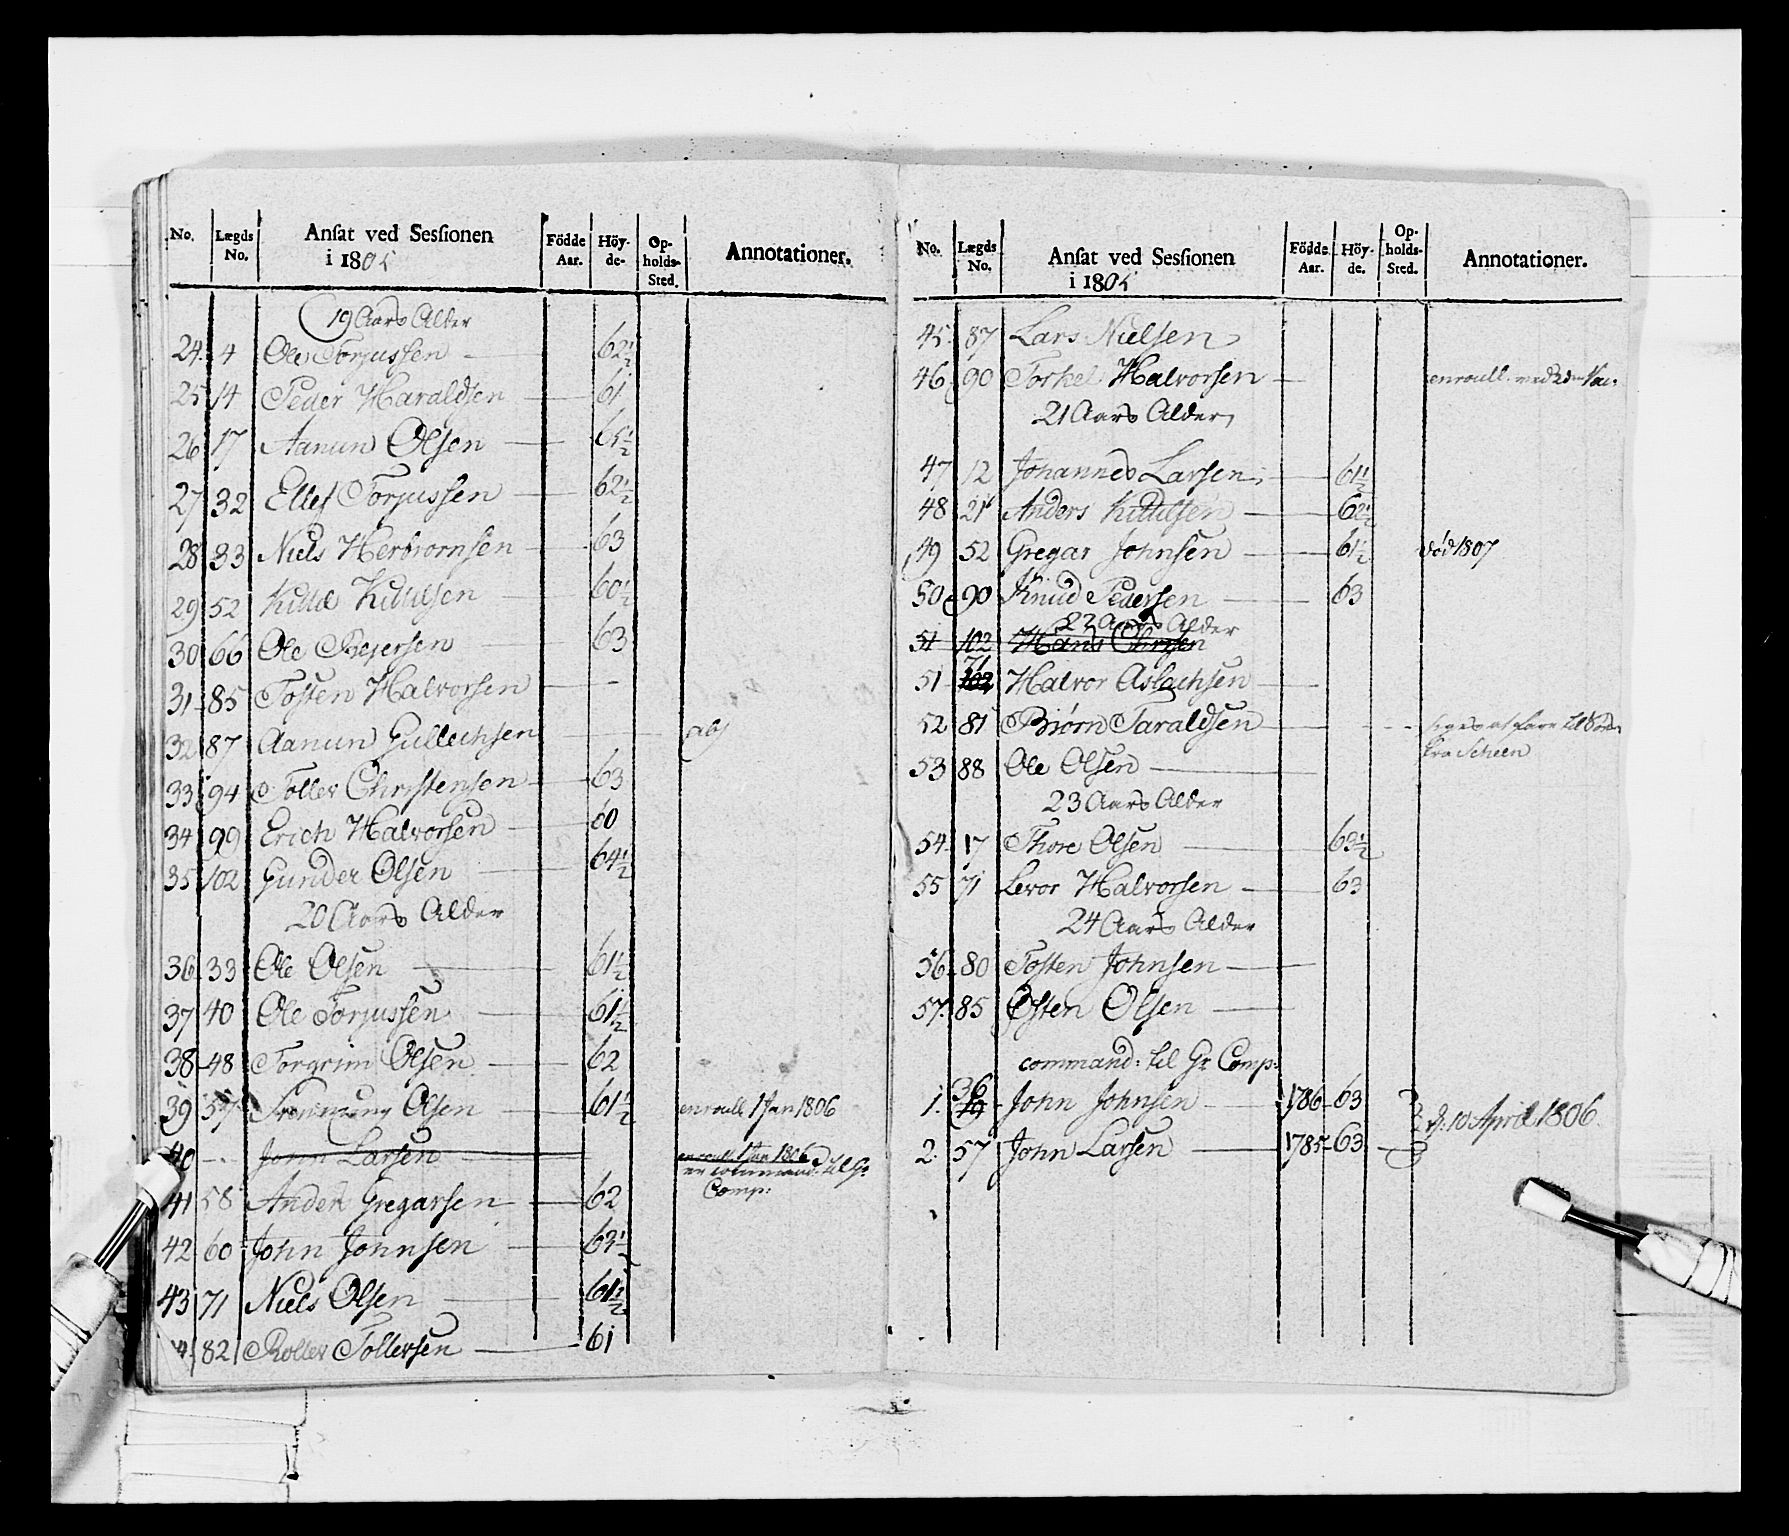 No. Lægds No. Ansat ved Sessionen i 1805 Födde Aar. Höy-de. Op-holds-Sted. Annotationer.
19 Aars Alder
24. 4 Ole Torjussen 62½
25 14 Peder Haraldsen 61
26 17 Aanun Olsen 65½
27 32 Ellef Torjussen 62½
28 33 Niels Herbiornsen 63
29 52 Kittil Kittilsen 60½
30 66 Ole Pedersen 63
31 85 Tosten Halvorsen -
32 87 Aanun Gullechsen
33 94 Toller Christensen 63
34 99 Erich Halvorsen 60
35 102 Gunder Olsen 64½
20 Aars Alder
36 33 Ole Olsen 61½
37 40 Ole Torjussen 61½
38 48 Torgrim Olsen 62
39 57 Olsen 61½ enroull 1 Jan 1806
40 - John Larsen enroull 1 Jan 1806
er command: til Gr
Comp:
41 58 Anders Gregarsen 62
42 60 John Johnsen 63½
43 71 Niels Olsen 61½
82 Roller Tollersen 61
No. Lægds No. Ansat ved Sessionen i 1805 Födde Aar. Höy-de. Op-holds-Sted. Annotationer.
45. 87 Lars Nielsen
46 90 Torkel Halvorsen enroull. ved
21 Aars Alder
47 12 Johannes Larsen 61½
48 21 Anders Kittilsen 62½
49 52 Gregar Johnsen 61½ død 1807
50 90 Knud Pedersen 63
22 Aars Alder
51 102 Hans
51 71 102 Halvor Aslachsen
52 81 Biørn Taraldsen siges at fare til
fra Scheen
53 88 Ole Olsen
23 Aars Alder
54 17 Thore Olsen 63½
55 71 Levor Halvorsen 63
24 Aars Alder
56 80 Tosten Johnsen
57. 85 Østen Olsen
command: til Gr Comp:
1. 36 John Johnsen 1786 63
d. 10 April 1806.
2. 57 John Larsen 1785 63